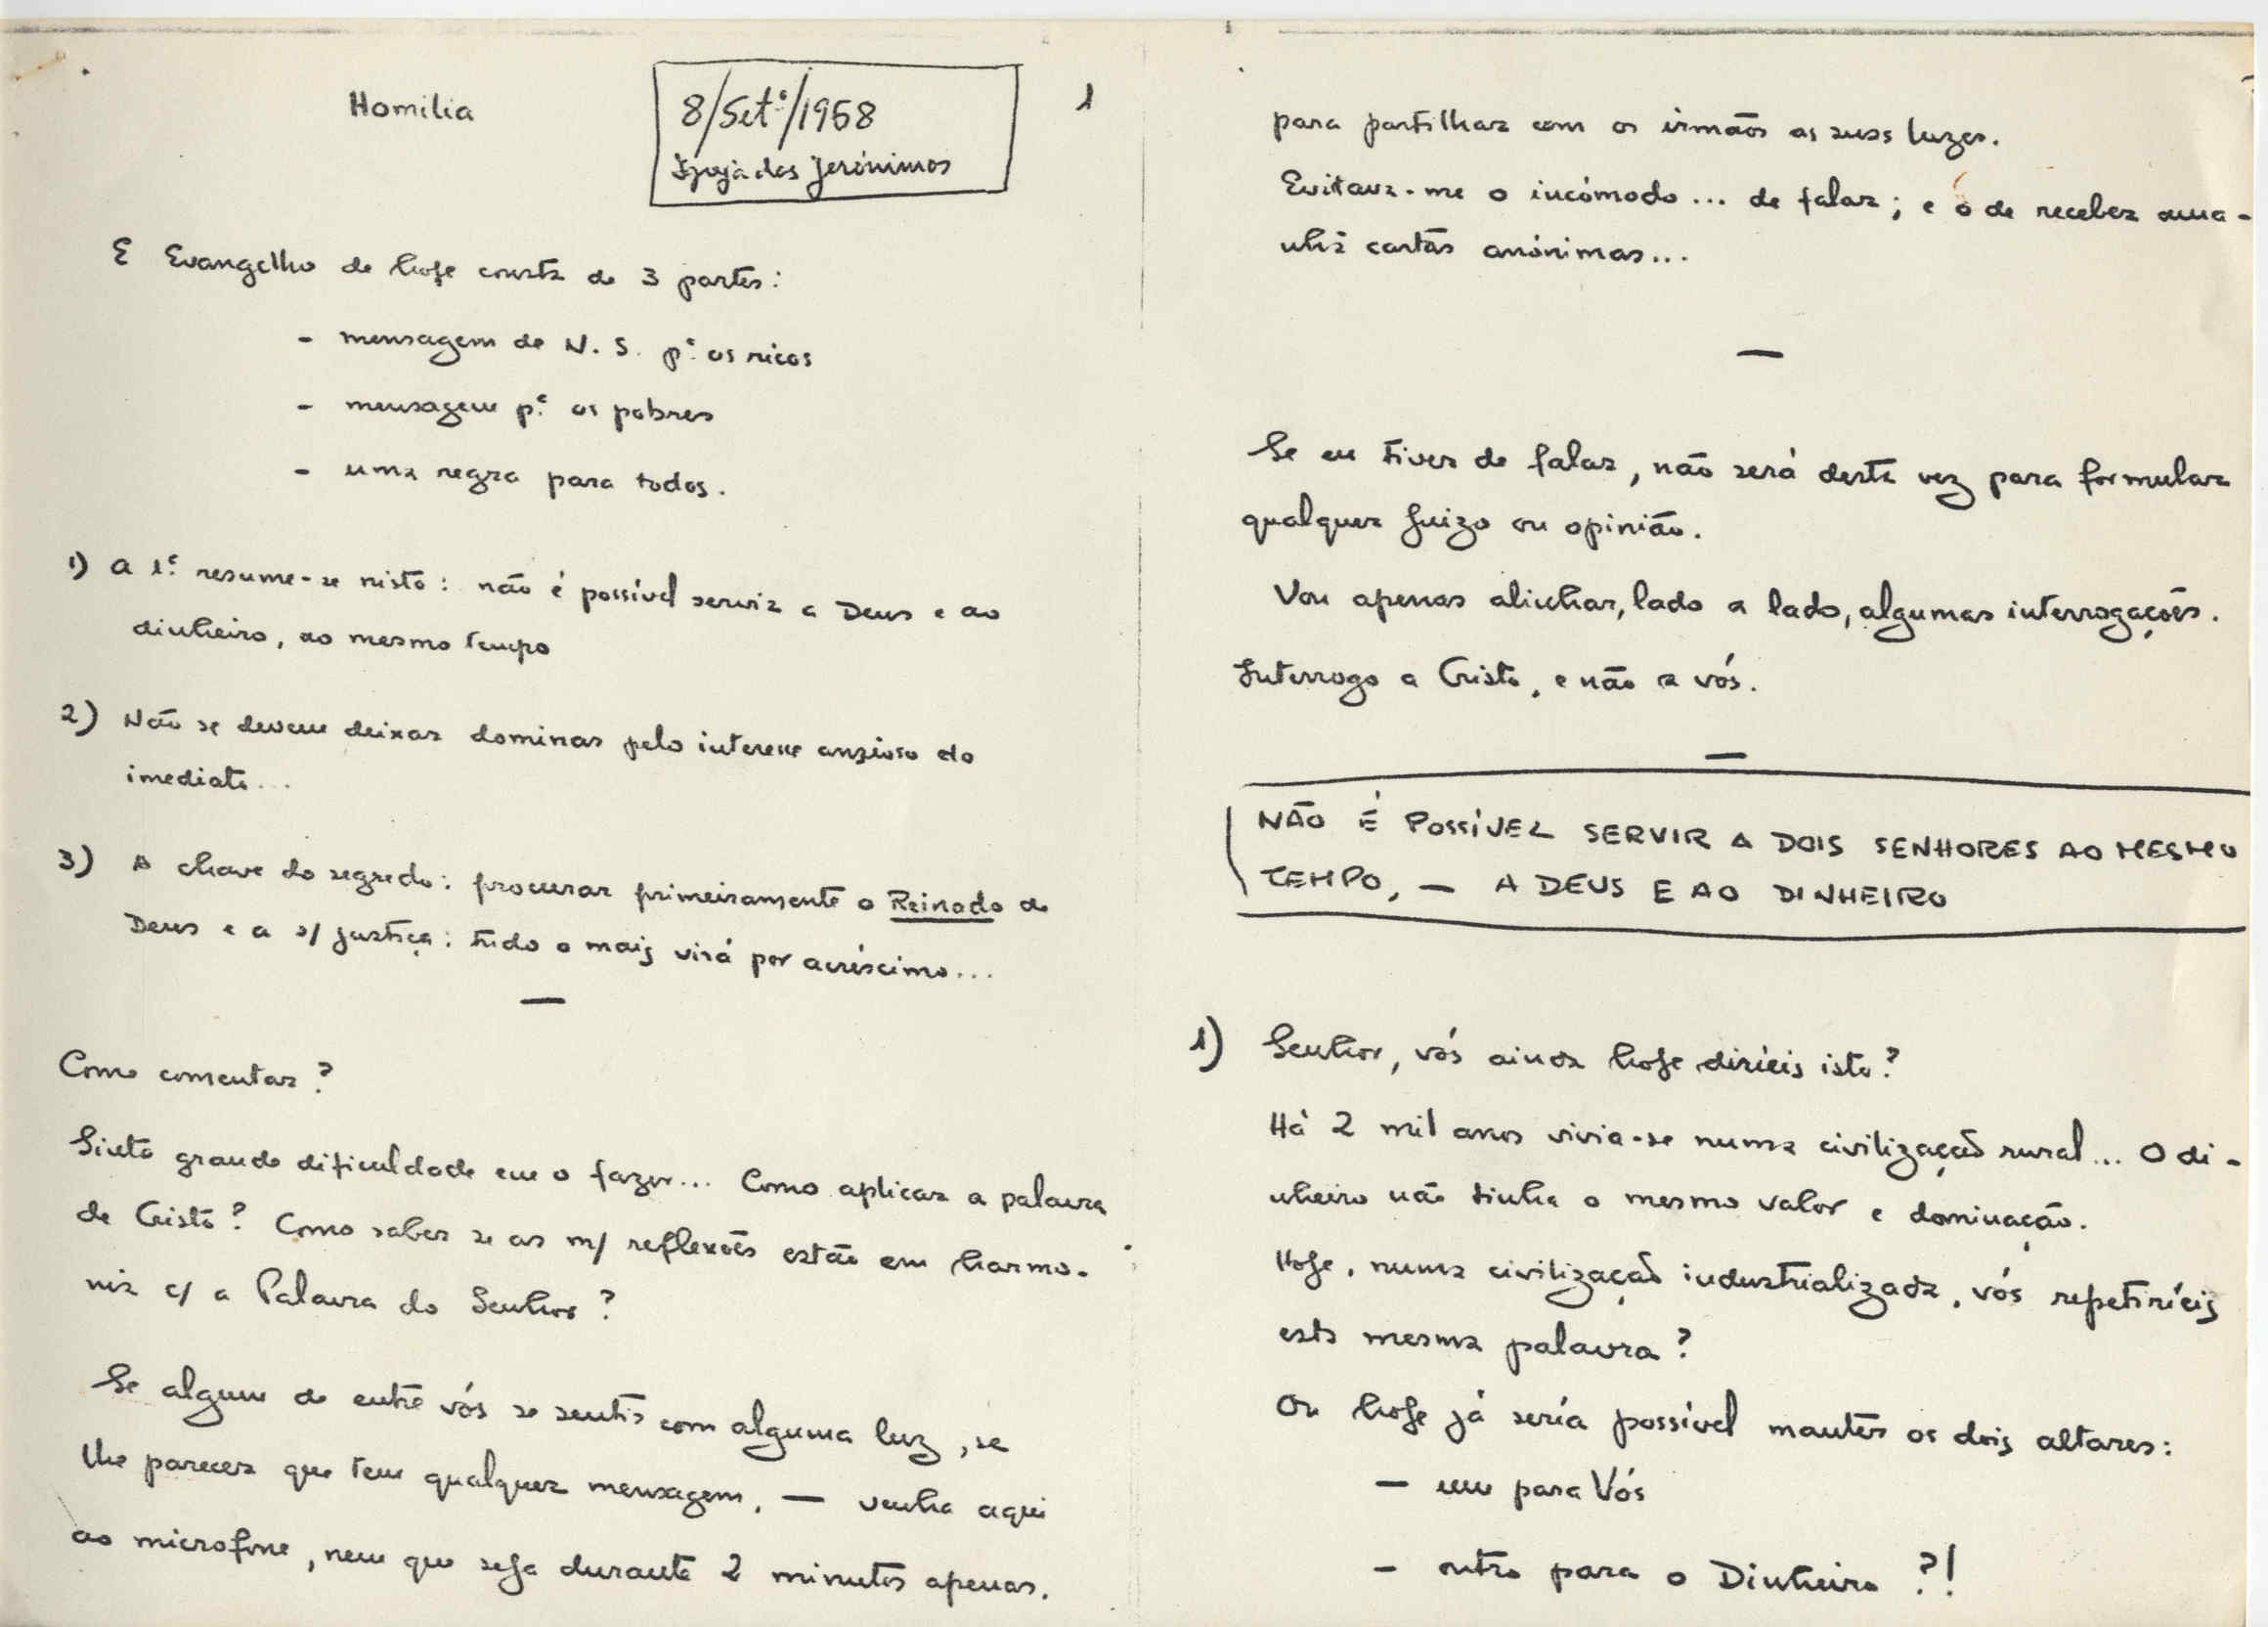 Homilia
8/Set.º/1968
Igreja dos Jerónimos
1
E Evangelho de hoje consta de 3 partes:
- mensagem de N. S. p.ª os ricos
- mensagem p.ª os pobres
- uma regra para todos.
1) A 1.ª resume-se nisto: não é possível servir a Deus e ao
dinheiro, ao mesmo tempo
2) Não se devem deixar dominar pelo interesse ansioso do
imediato...
3) A chave do segredo: procurar primeiramente o Reinado de
Deus e a s/ justiça: tudo o mais virá por acréscimo...
—
Como comentar?
Sinto grande dificuldade em o fazer... Como aplicar a palavra
de Cristo? Como saber se as m/ reflexões estão em harmo-
nia c/ a Palavra do Senhor?
Se algum de entre vós se sentir com alguma luz, se
lhe parecer que tem qualquer mensagem, — venha aqui
ao microfone, nem que seja durante 2 minutos apenas,
para partilhar com os irmãos as suas luzes.
Evitava-me o incómodo... de falar; e o de receber ama-
nhã cartas anónimas...
—
Se eu tiver de falar, não será desta vez para formular
qualquer juizo ou opinião.
Vou apenas alinhar, lado a lado, algumas interrogações.
Interrogo a Cristo, e não a vós.
—
NÃO É POSSÍVEL SERVIR A DOIS SENHORES AO MESMO
TEMPO, — A DEUS E AO DINHEIRO
1) Senhor, vós ainda hoje diríeis isto?
Há 2 mil anos vivia-se numa civilização rural... O di-
nheiro não tinha o mesmo valor e dominação.
Hoje, numa civilização industrializada, vós repetiríeis
esta mesma palavra?
Ou hoje já seria possível manter os dois altares:
— um para Vós
- outro para o Dinheiro ?!